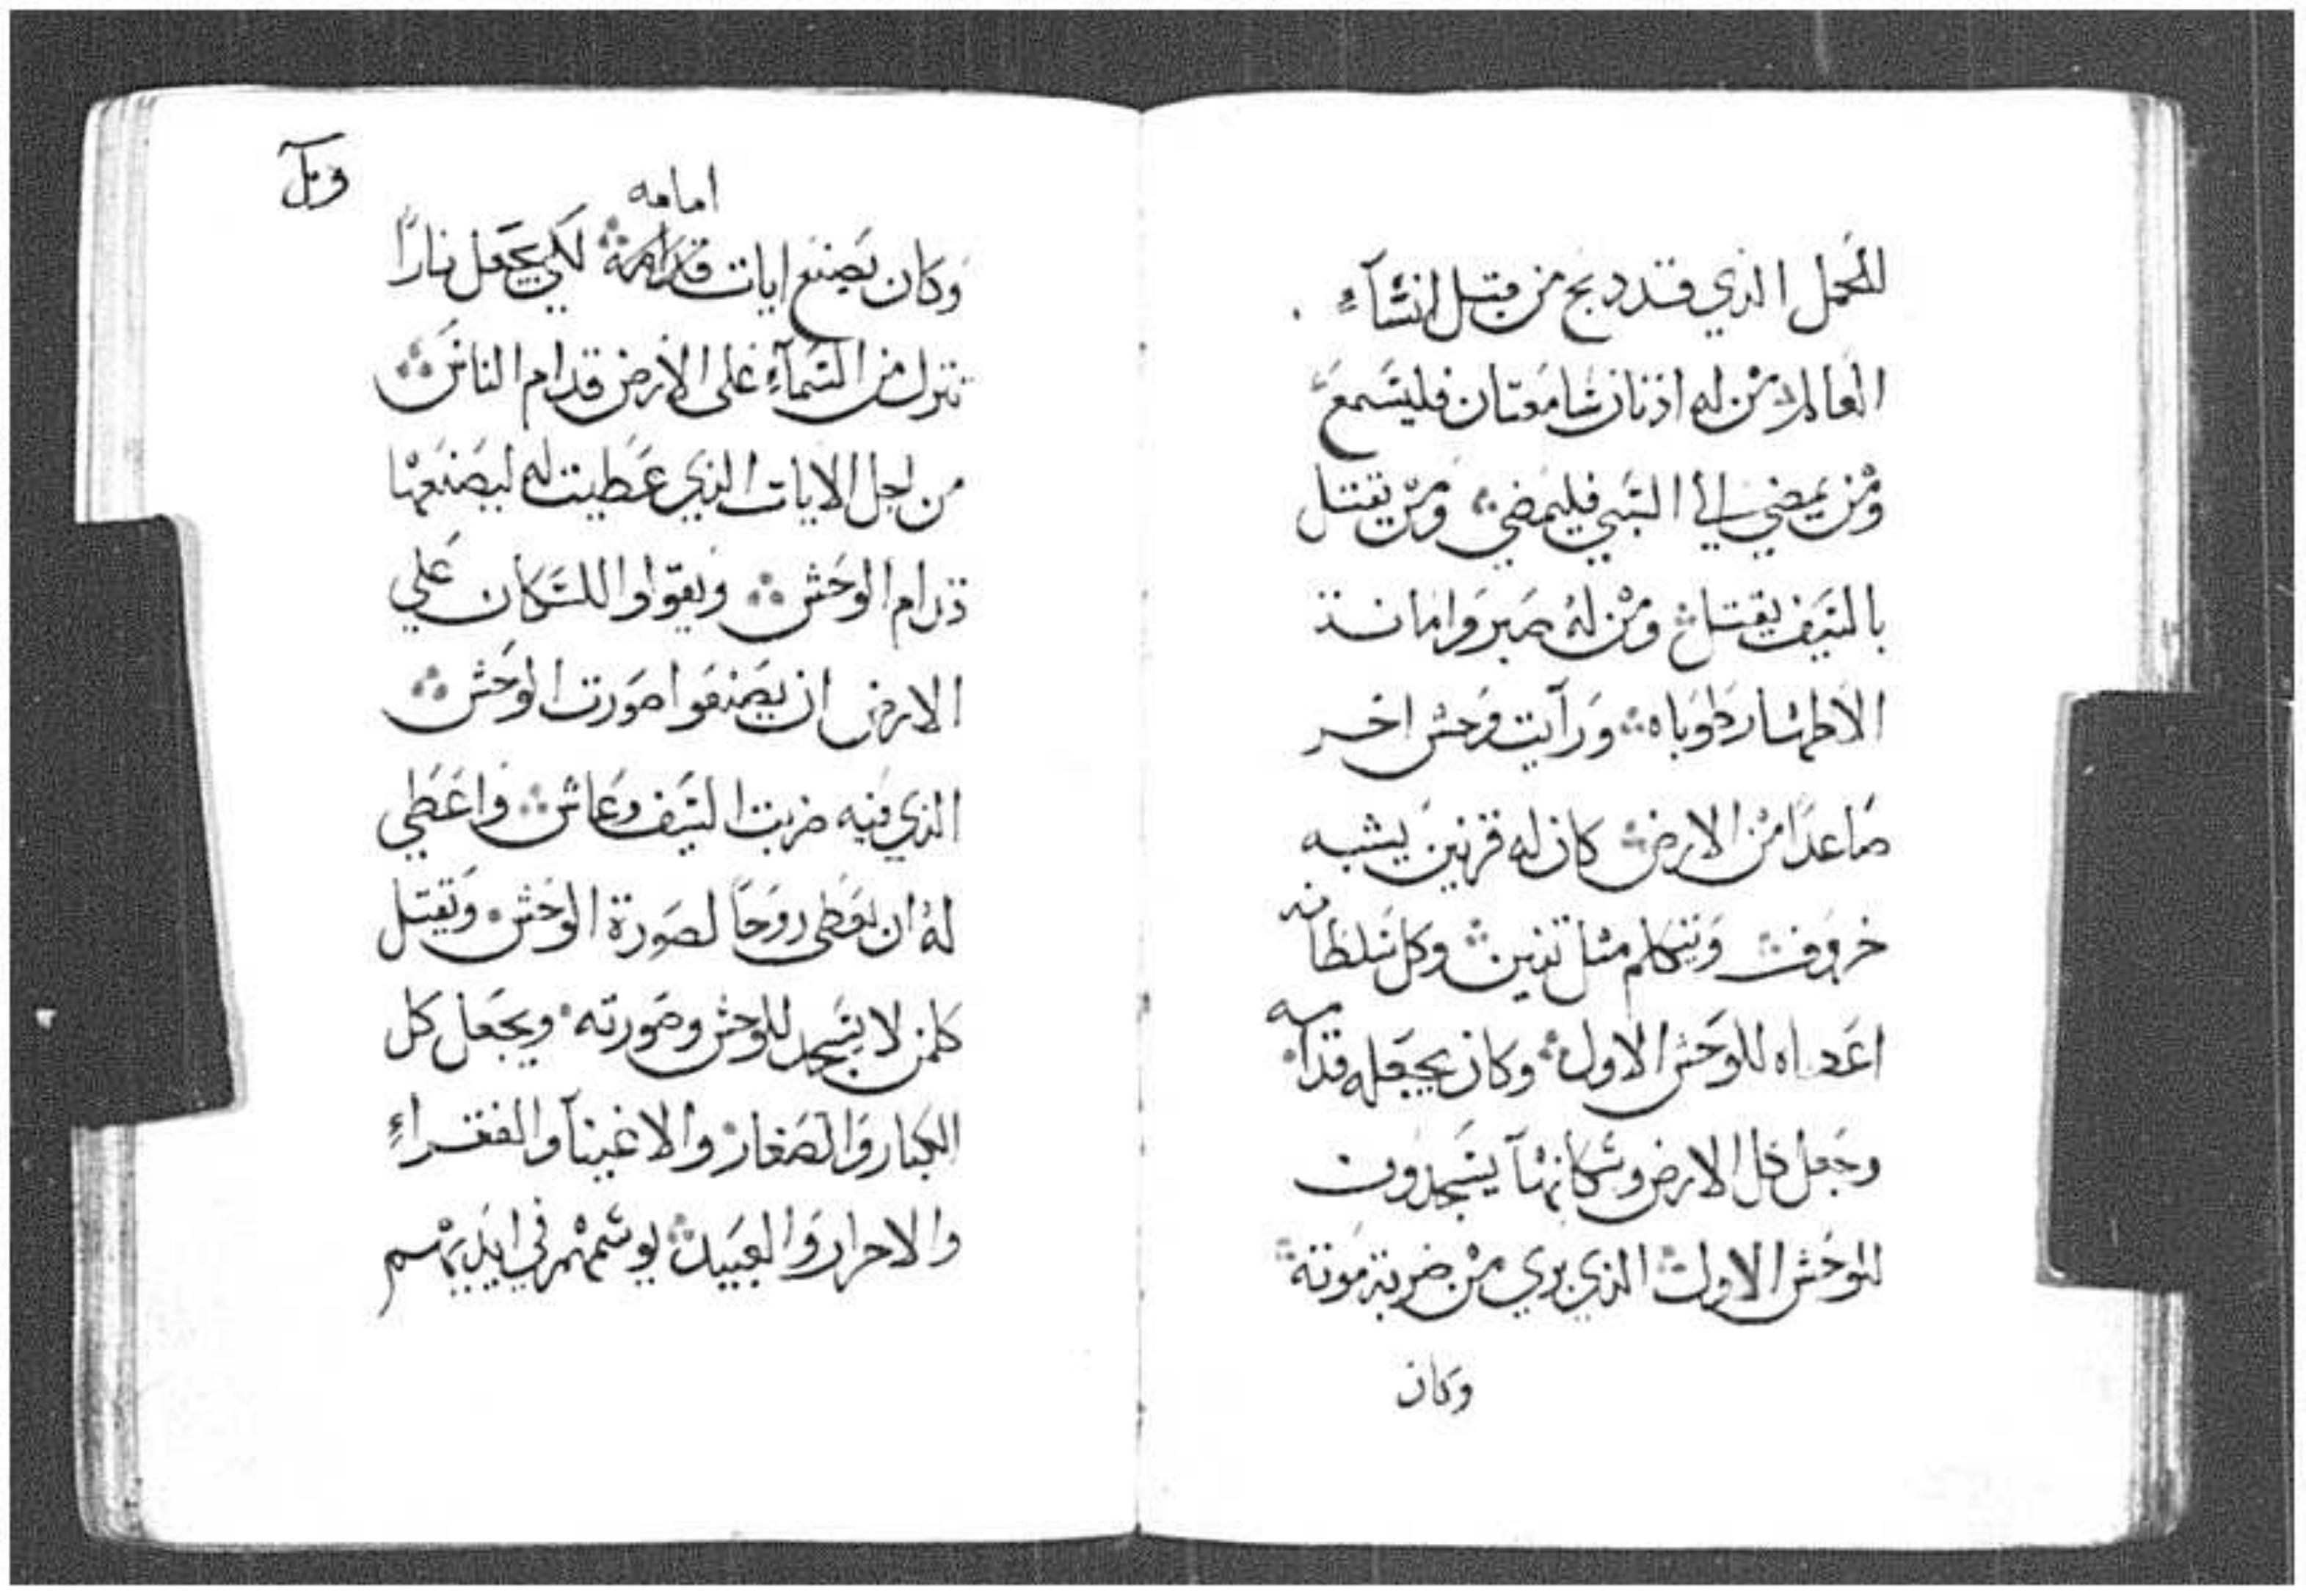 للحمل الذي قد دبح من قبل انشآءِ
العالم ۞ من له اذنان سَامعتان فليسَمع
ومن يمضي الي السَبي فليمضي ۞ ومن يقتل
بالسَيف يقتل ۞ ومن له صبر وامانة
الاطهار طوباه ۞ ورآيت وحش اخر
صاعدًا من الارض ۞ كان له قرنين يشبه
خروف ۞ ويتكلم مثل تنين ۞ وكل سَلطانه
اعطاه للوحش الاول ۞ وكان يجعله قدامه
وجعل كل الارض وسَكانهآ يسَجدون
للوحش الاول ۞ الذي بري من ضربة موته ۞
وكان
وبل
امامه
وكان يصنع ايات قدامه ۞ لكي يجعل نارًا
تنزل من السَمآءِ على الارض قدام الناس ۞
من اجل الايات الذي عطيت له ليصنعها
قدام الوحش ۞ ويقولوا للسَكان علي
الارض ان يصنعوا صورت الوحش ۞
الذي فيه ضربت السَيف وعاش ۞ واعطي
لهُ ان يعطى روحًا لصورة الوحش ۰ ويقتل
كلمن لا يسَجد للوحش وصورته ۰ ويجعل كل
الكبار والصغار ۰ والاغنيآ والفقراءِ
والاحرار والعبيد ۞ يوسَمهم في ايديهم